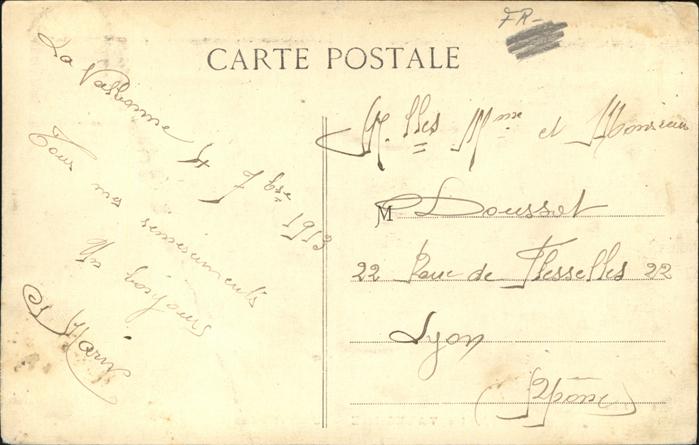 FR-
CARTE POSTALE
La Valbonne 4 7bre 1913
Tous mes
Un bonjour
M.lles Mme et Monsieur
M Doussot
22 Rue de Flesselles 22
Lyon
(Rhône)